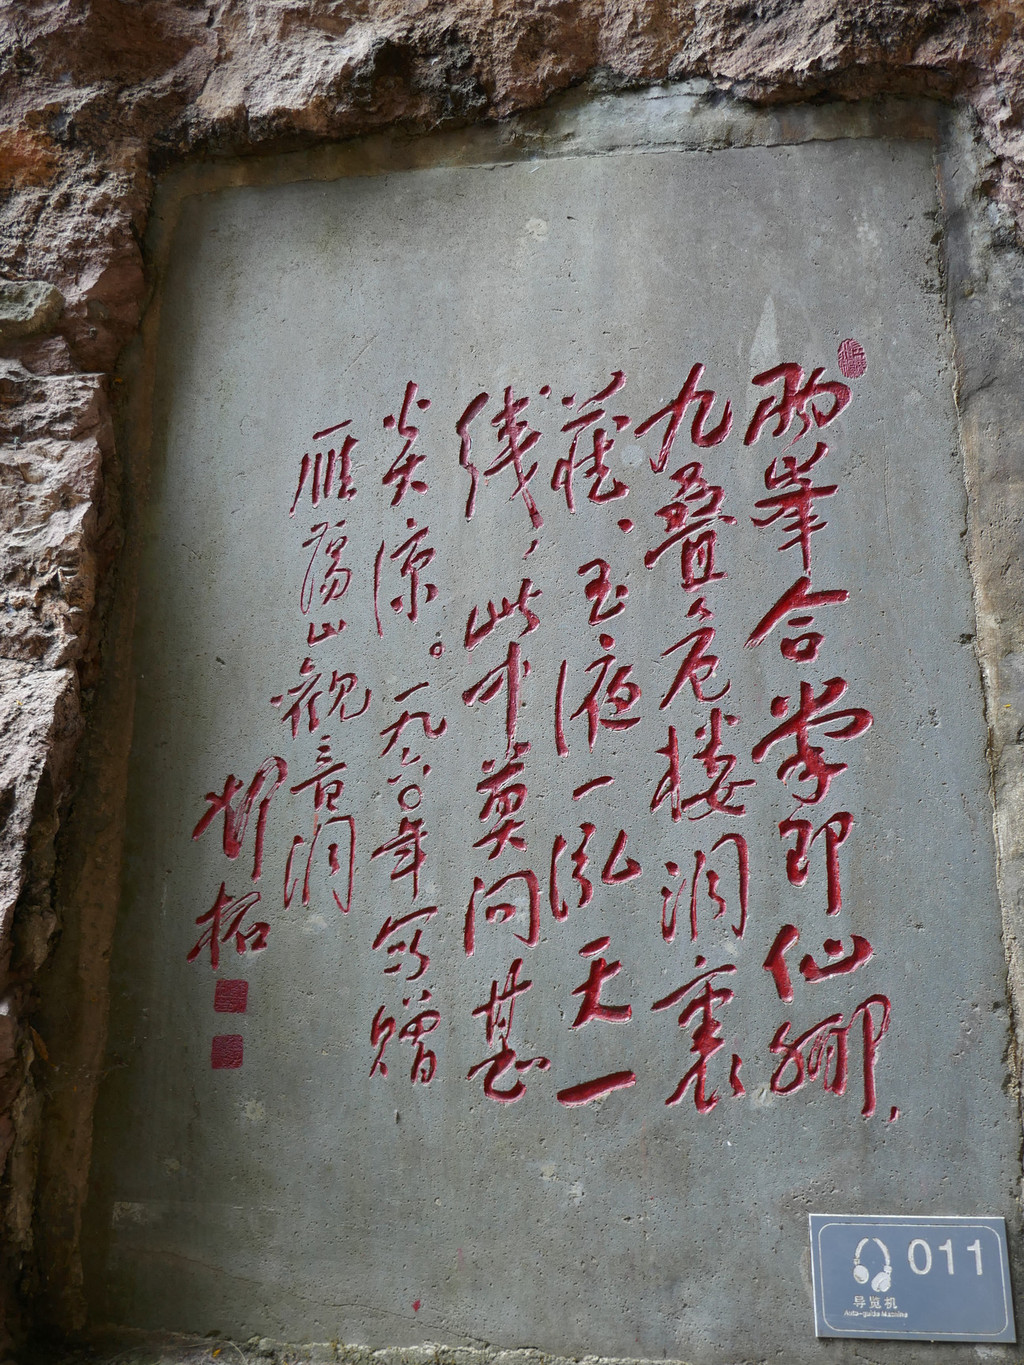 两峯合掌即仙鄉,
九叠危楼洞裏
藏、玉液一泓天一
线,此中莫问甚
炎凉。一九六〇年写赠
雁荡山觀音洞
邓拓
011
导览机
Auto-guide Machine